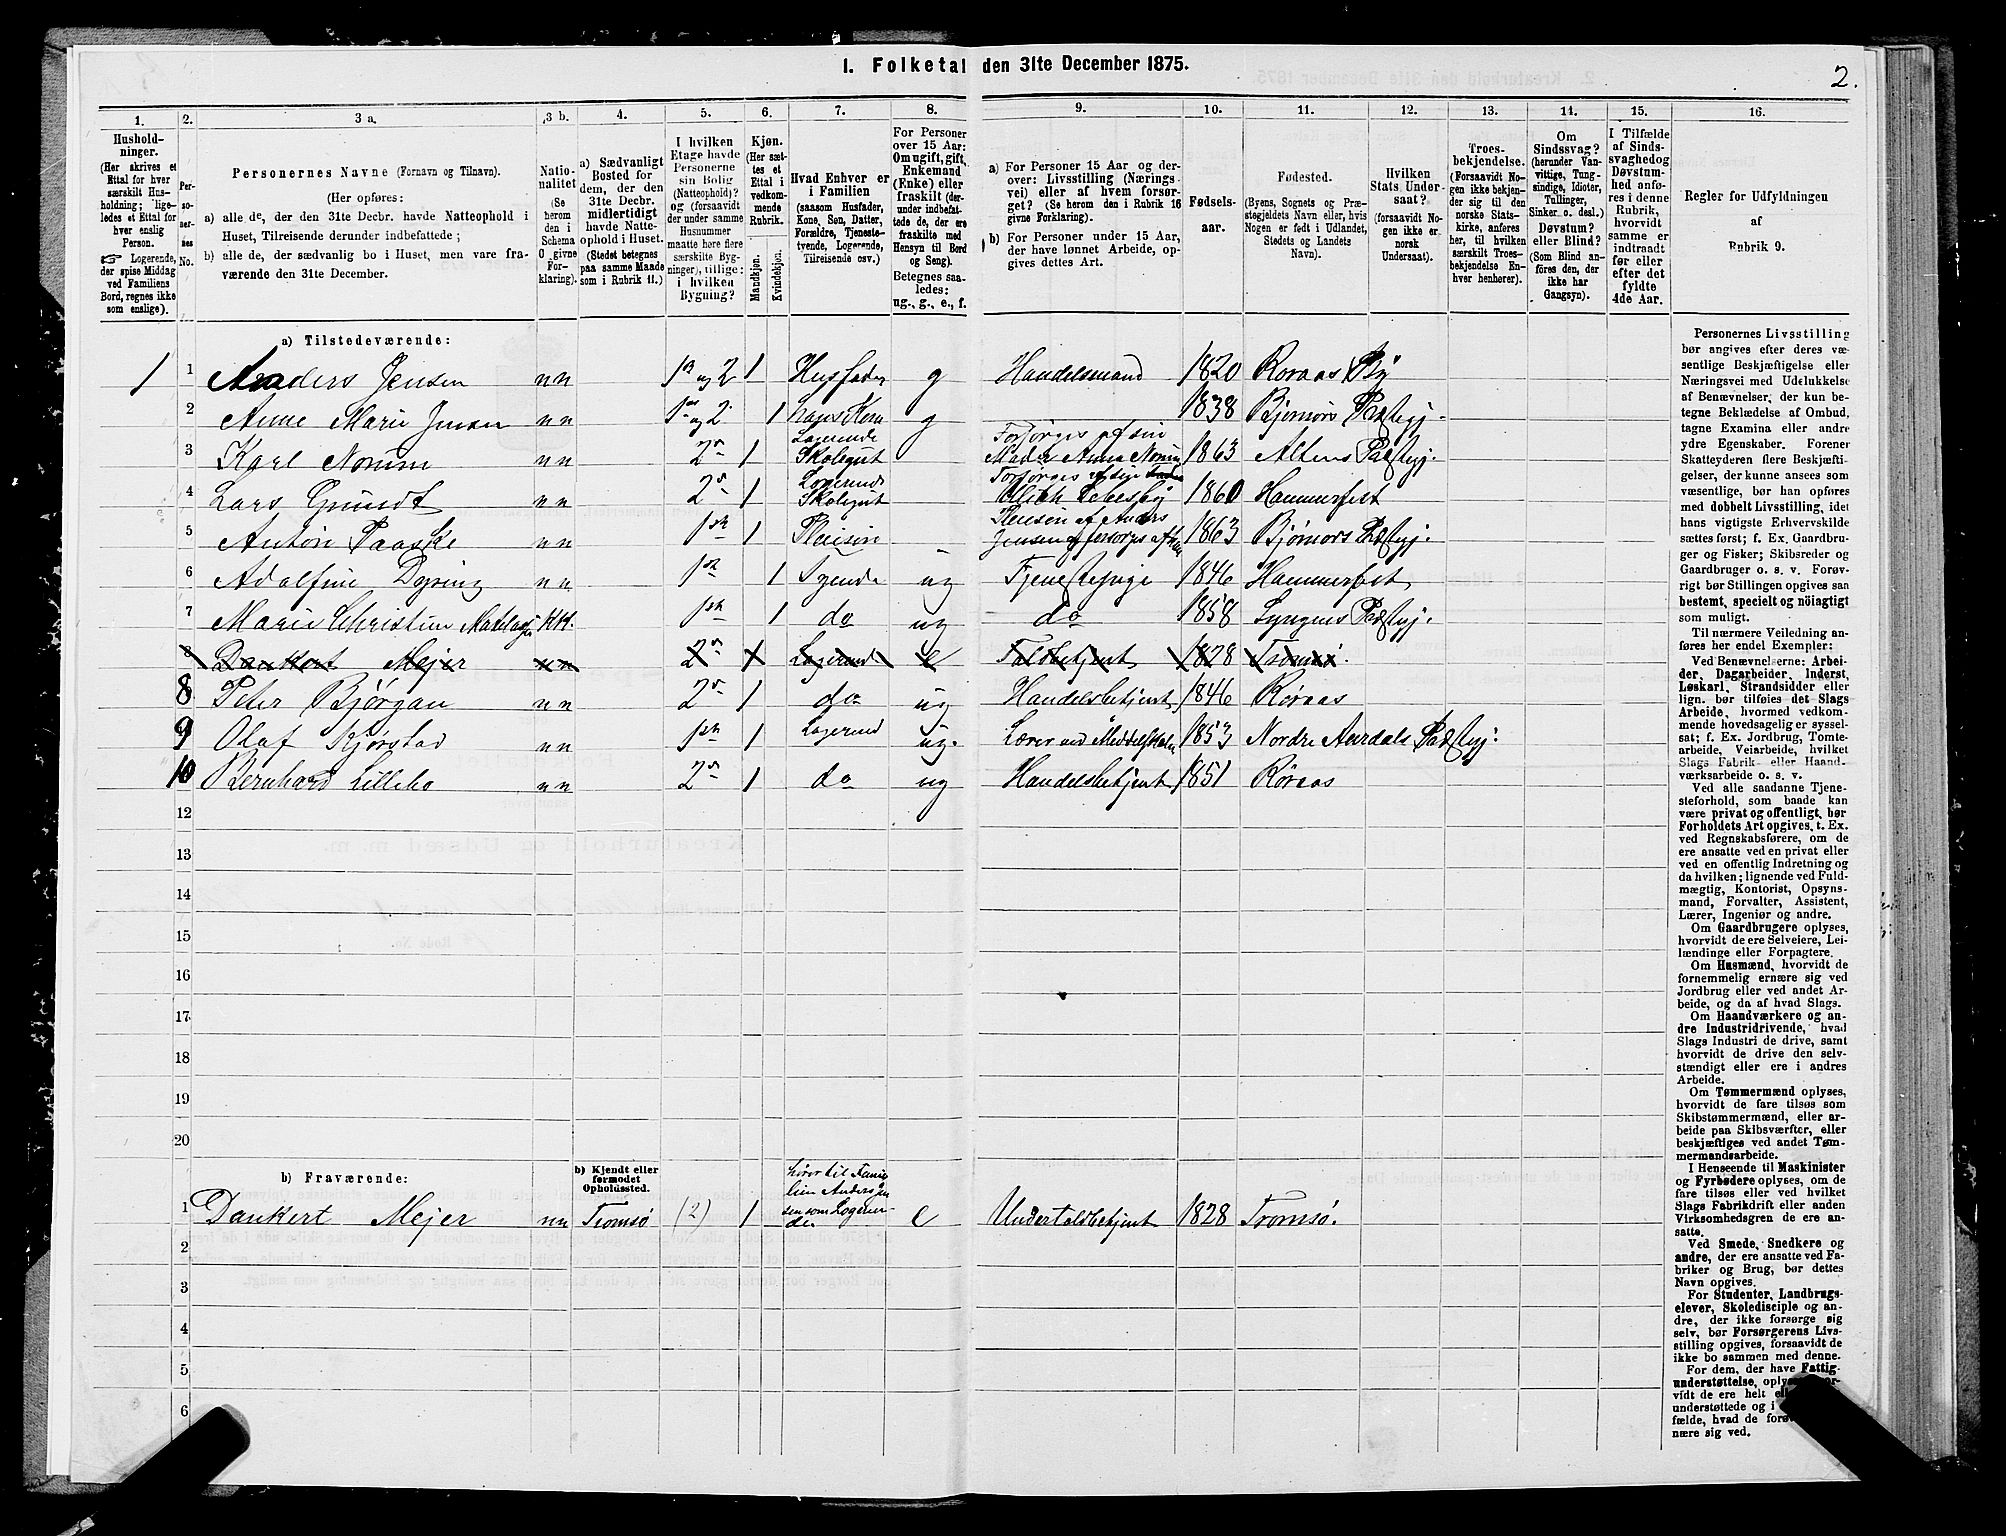 1. Folketal den 31te December 1875.
2.
1. 2. 3 a. 3 b. 4. 5. 6. 7. 8. 9. 10. 11. 12. 13. 14. 15. 16.
Husholdninger.
(Her skrives et
Ettal for hver
særskilt Husholdning; ligeledes et Ettal for
hver enslig
Person.
☞ Logerende,
der spise Middag
ved Familiens
Bord, regnes ikke
som enslige).
Personernes No.
Personernes Navne (Fornavn og Tilnavn).
(Her opføres:
a) alle de, der den 31te Decbr. havde Natteophold i
Huset, Tilreisende derunder indbefattede;
b) alle de, der sædvanlig bo i Huset, men vare fraværende den 31te December.
Nationalitet
(Se
herom
den i
Schema
O givne
Forklaring).
a) Sædvanligt
Bosted for
dem, der den
31te Decbr.
midlertidigt
havde Natteophold i Huset.
(Stedet betegnes
paa samme Maade
som i Rubrik 11.)
I hvilken
Etage havde
Personerne
sin Bolig
(Natteophold)?
og (forsaavidt
der under samme
Husnummer
maatte høre flere
særskilte Bygninger), tillige:
i hvilken
Bygning?
Kjøn.
(Her sættes et
Ettal i
vedkommende
Rubrik.
Mandkjøn.
Kvindekjøn.
Hvad Enhver er
i Familien
(saasom Husfader,
Kone, Søn, Datter,
Forældre, Tjenestetyende, Logerende,
Tilreisende osv.)
For Personer
over 15 Aar:
Om ugift, gift,
Enkemand
(Enke) eller
fraskilt (derunder indbefattede de, der ere
fraskilte med
Hensyn til Bord
og Seng).
Betegnes saaledes:
ug., g., e., f.
a) For Personer 15 Aar og derover: Livsstilling (Næringsvei) eller af hvem forsørget? (Se herom den i Rubrik 16
givne Forklaring).
b) For Personer under 15 Aar,
der have lønnet Arbeide, opgives dettes Art.
Fødselsaar.
Fødested.
(Byens, Sognets og Præstegjeldets Navn eller, hvis
Nogen er født i Udlandet,
Stedets og Landets
Navn).
Hvilken
Stats Undersaat?
(forsaavidt Nogen ikke er
norsk
Undersaat).
Troesbekjendelse.
(Forsaavidt Nogen ikke bekjender sig til den
norske Statskirke, anføres
her, til hvilken
særskilt Troesbekjendelse Enhver henhører).
Om
Sindssvag?
(herunder Vanvittige, Tungsindige, Idioter,
Tullinger,
Sinker o. desl.)
Døvstum?
eller Blind?
(Som Blind anføres den, der
ikke har
Gangsyn).
I Tilfælde
af Sindssvaghed og
Døvstumhed anføres i denne
Rubrik,
hvorvidt
samme er
indtraadt
før eller
efter det
fyldte
4de Aar.
Regler for Udfyldningen
af
Rubrik 9.
a) Tilstedeværende:
1 1 Anders Jensen nn 1ste og 2 1 Husfader g Handelsmand 1820 Roraas By
2 Anne Marie Jensen nn 1ste og 2 1 hans Kone g 1838 Bjørnørs Præstegj.
3 Karl Norum nn 2den 1 Logerende Skolegut Forsørges af sin Moder Anna Norum 1863 Altens Præstegj.
4 Lars Grundt nn 2den 1 Logerende Skolegut Forsørges af Lebesby 1860 Hammerfest
5 Anton Paaske nn 1ste 1 Pleiesøn Pleiesøn af Anders Jensen og forsørges af ham 1863 Bjørnørs Præstegj.
6 Adolfine Dyring nn 1ste 1 Tyende ug Tjenestepige 1846 Hammerfest
7 Marie Christine 1ste 1 do ug do 1858 Lyngens Præstegj.
8 Dankert Mejer nn 2den 1 Logerende e Toldbetjent 1828 Tromsø.
8 Peter Bjørgan nn 2den 1 do ug Handelsbetjent 1846 Røraas
9 Olaf Kjørstad nn 1ste 1 Logerend ug. Lærer ved Middelskolen 1853 Nordre Aurdals Præstegj.
10 Bernhard Lillebo nn 2den 1 do ug Handelsbetjent 1851 Røraas
12
13
14
15
16
17
18
19
20
b) Fraværende:
b) Kjendt eller
formodet
Opholdssted.
1 Dankert Mejer nn Tromsø (2) 1 hører til Familien Anders Jensen som Logerende e Undertoldbetjent 1828 Tromsø.
2
3
4
5
6
Personernes Livsstilling
bør angives efter deres væsentlige Beskjæftigelse eller
Næringsvei med Udelukkelse
af Benævnelser, der kun betegne Beklædelse af Ombud,
tagne Examina eller andre
ydre Egenskaber. Forener
Skatteyderen flere Beskjæftigelser, der kunne ansees som
væsentlige, bør han opføres
med dobbelt Livsstilling, idet
hans vigtigste Erhvervskilde
sættes først; f. Ex. Gaardbruger og Fisker; Skibsreder og
Gaardbruger o. s. v. Forøvrigt bør Stillingen opgives saa
bestemt, specielt og nöiagtigt
som muligt.
Til nærmere Veiledning anføres her endel Exempler:
Ved Benævnelserne: Arbeider, Dagarbeider, Inderst,
Løskarl, Strandsidder eller
lign. bør tilføies det Slags
Arbeide, hvormed vedkommende hovedsagelig er sysselsat; f. Ex. Jordbrug, Tomtearbeide, Veiarbeide, hvilket
Slags Fabrik- eller Haandværksarbeide o. s. v.
Ved alle saadanne Tjenesteforhold, som baade kan
være privat og offentligt, bør
Forholdets Art opgives, t. Ex.
ved Regnskabsførere, om de
ere ansatte ved en privat eller
ved en offentlig Indretning og
da hvilken; lignende ved Fuldmægtig, Kontorist, Opsynsmand, Forvalter, Assistent,
Lærer, Ingeniør og andre.
Om Gaardbrugere oplyses,
hvorvidt de ere Selveiere, Leilændinge eller Forpagtere.
Om Husmænd, hvorvidt de
fornemmelig ernære sig ved
Jordbrug eller ved andet Arbeide, og da af hvad Slags.
Om Haandværkere og andre Industridrivende, hvad
Slags Industri de drive, samt
hvorvidt de drive den selvstændigt eller ere i andres
Arbeide.
Om Tømmermænd oplyses,
hvorvidt de fare tilsøs som
Skibstømmermænd, eller arbeide paa Skibsværfter, eller
beskjæftiges ved andet Tømmermandsarbeide.
I Henseende til Maskinister
og Fyrbødere oplyses, om de
fare tilsøs eller ved hvilket
Slags Fabrikdrift eller anden
Virksomhedsgren de ere ansatte.
Ved Smede, Snedkere og
andre, der ere ansatte ved Fabriker og Brug, bør dettes
Navn opgives.
For Studenter, Landbrugselever, Skoledisciple og andre, der ikke forsørge sig
selv, bør Forsørgerens Livsstilling opgives, forsaavidt de
ikke bo sammen med denne.
For dem, der have Fattigunderstøttelse,